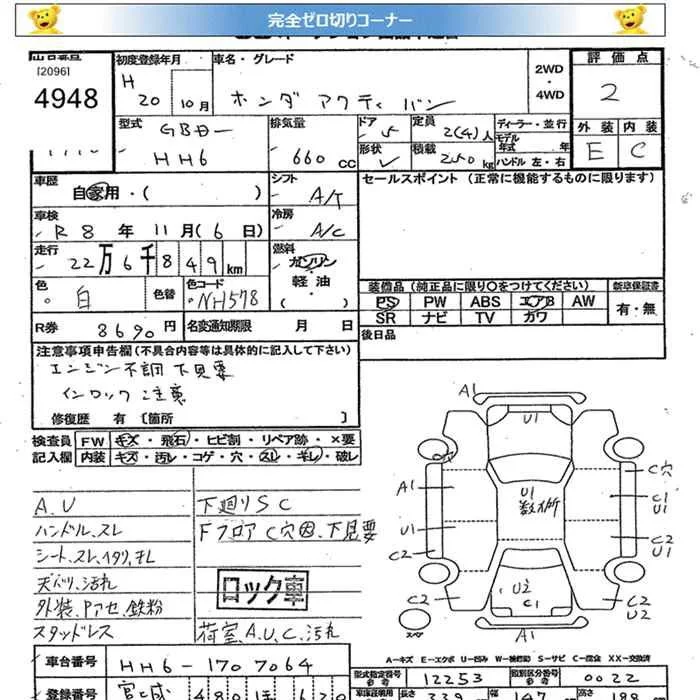 完全ゼロ切りコーナー
[2096]
4948
初度登録年月
H 20 10月
車名・グレード
ホンダ アクティ バン
2WD・4WD
評価点
2
外装 内装
E C
型式 GBD一 HH6
排気量 660 CC
ドア 5
形状
定員 2(4)人
積載 250 kg
ディーラー・並行
モデル年式 年
ハンドル 左・右
車歴
自家用・( )
シフト A/T
セールスポイント (正常に機能するものに限ります)
車検
R 8 年 11月 (6 日)
冷房 A/C
走行
22万6千849km
燃料 ガソリン・軽油・( )
色 白 色替
色コード NH578
装備品 (純正品に限り○をつけてください)
新車保証書
PS PW ABS エアB AW
有・無
SR ナビ TV カワ
R券 8690円
名変通知期限 月 日
後日品
注意事項申告欄(不具合内容等は具体的に記入して下さい)
エンジン不調 下見要
インロック注意
修復歴 有 [箇所 ]
検査員記入欄
FW キズ・飛石・ヒビ割・リペア跡・×要
内装 キズ・汚レ・コゲ・穴・スレ・キレ・破レ
A.U
ハンドル、スレ
シート、スレ、イタリ、キレ
天バリ、汚れ
外装、ヤケ、サセ、鉄粉
スタッドレス
下廻りSC
FフロアC穴因、下見要
ロック車
荷室、A.U.C、汚れ
A1
U1
A1
U1
C2
C2
U1
数ヶ所
U2
C1
C穴
C1
U1
C2
U1
C2
U2
スペア
A1
A-キズ E-エクボ U-凹み W-補修跡 S-サビ C-腐食 XX-交換済
車台番号 HH6-1707064
型式指定番号 12253
類別区分番号 0022
登録番号